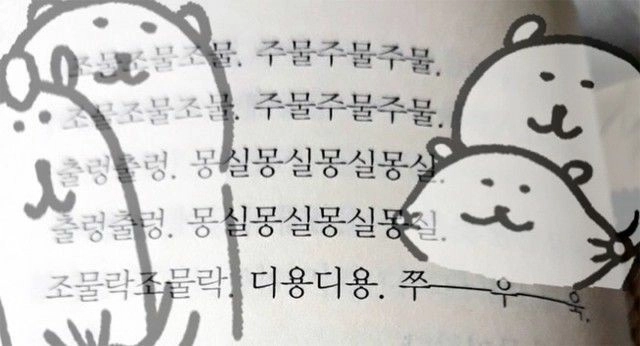 조물조물조물. 주물주물주물.
조물조물조물. 주물주물주물.
출렁출렁. 몽실몽실몽실몽실.
출렁출렁. 몽실몽실몽실몽실.
조물락조물락. 디용디용. 쭈──우──욱.